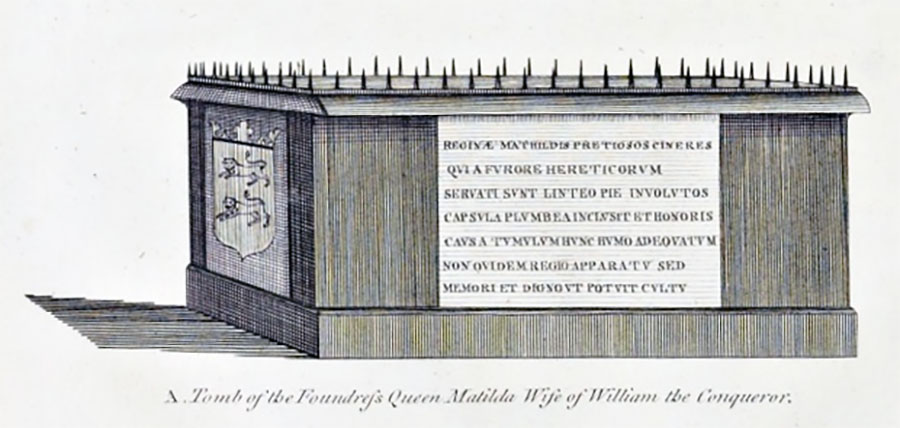 REGINÆ MATHILDIS PRETIOSOS CINERES
QVI A FVRORE HERETICORVM
SERVATI SVNT LINTEO PIE INVOLVTOS
CAPSVLA PLVMBEA INCLVSIT ET HONORIS
CAVSA TVMVLVM HVNC HVMO ADEQVATVM
NON QVIDEM REGIO APPARATV SED
MEMORI ET DIGNO VT POTVIT CVLTV
A. Tomb of the Foundreſs Queen Matilda Wife of William the Conqueror.